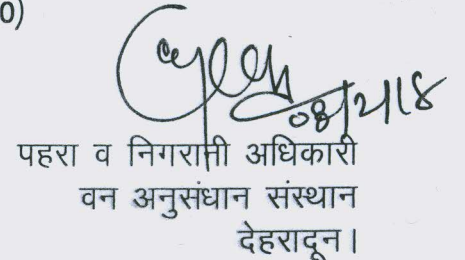 0)
पहरा व निगरानी अधिकारी
वन अनुसंधान संस्थान
देहरादून।